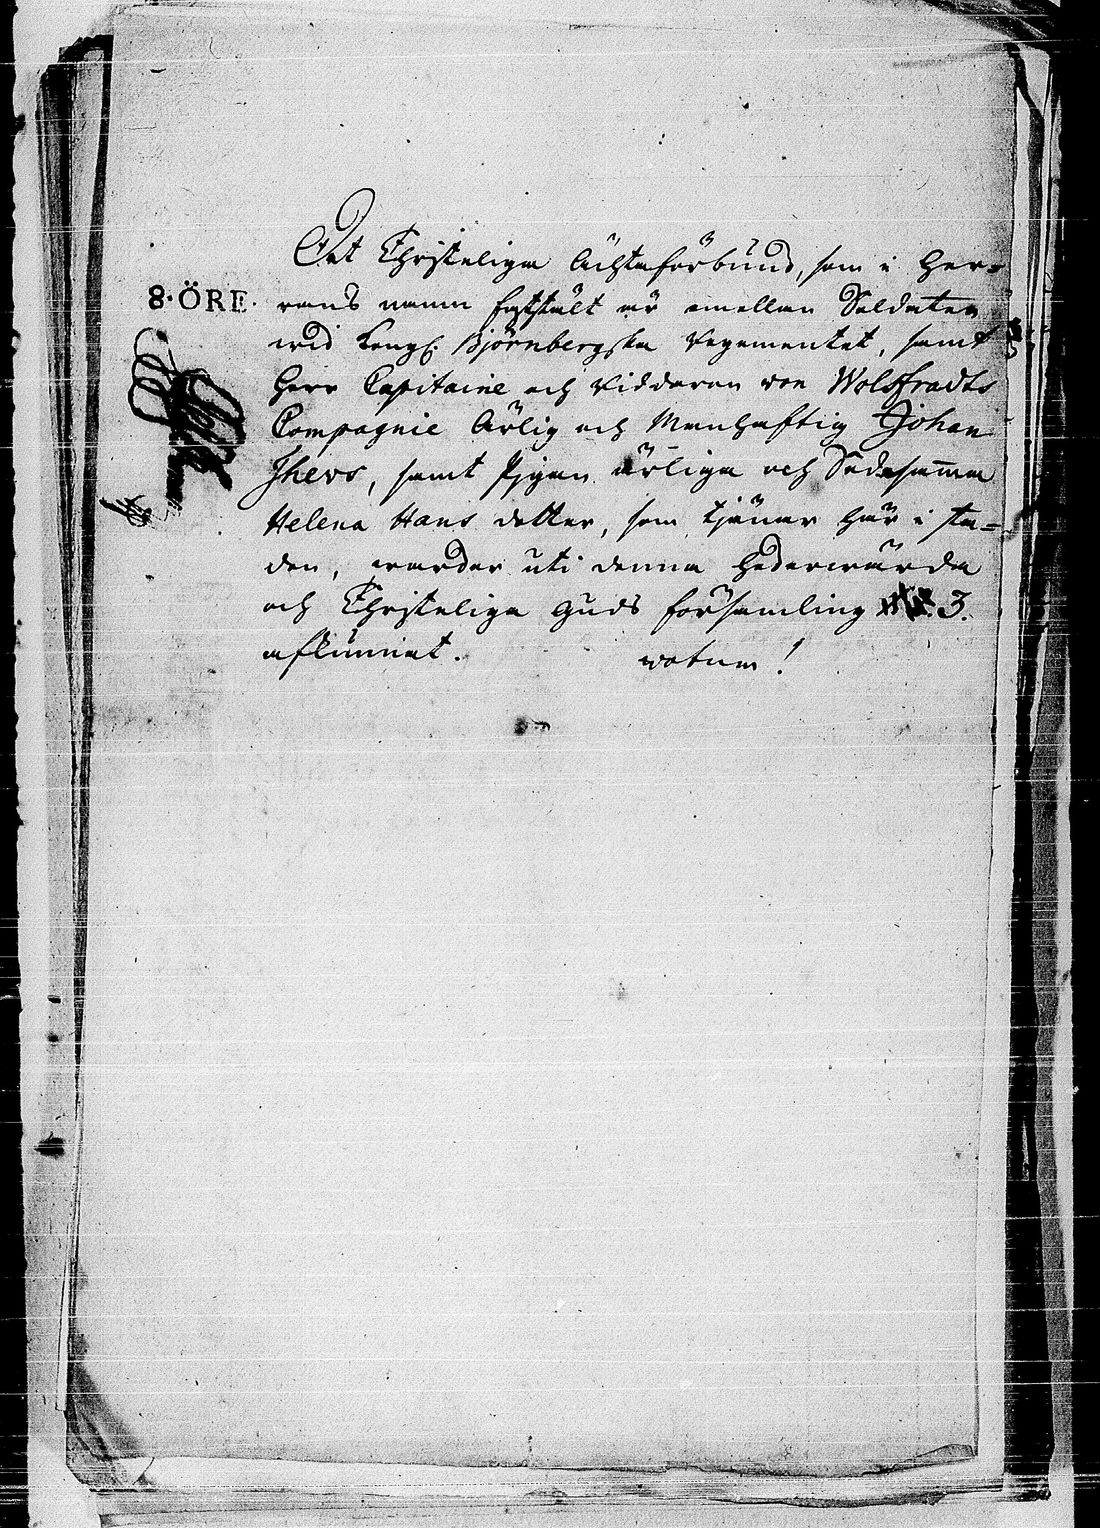 Det Christeliga Ächtaförbund, som i Her-
8·ÖRE·
rans namn fastställt är emellan Soldaten
wid Kongl. Björnbergska Regementet, samt
Herr Capitaine och Riddaren von Wolffradts
Compagnie Ärlig och Manhaftig Johan
samt Pigan ärliga och Sedesamma
Helena Hans dotter, som tjänar här i sta-
den, warder uti denna Hedervärda
och Christeliga Guds församling 3.
aflünnat. votum!